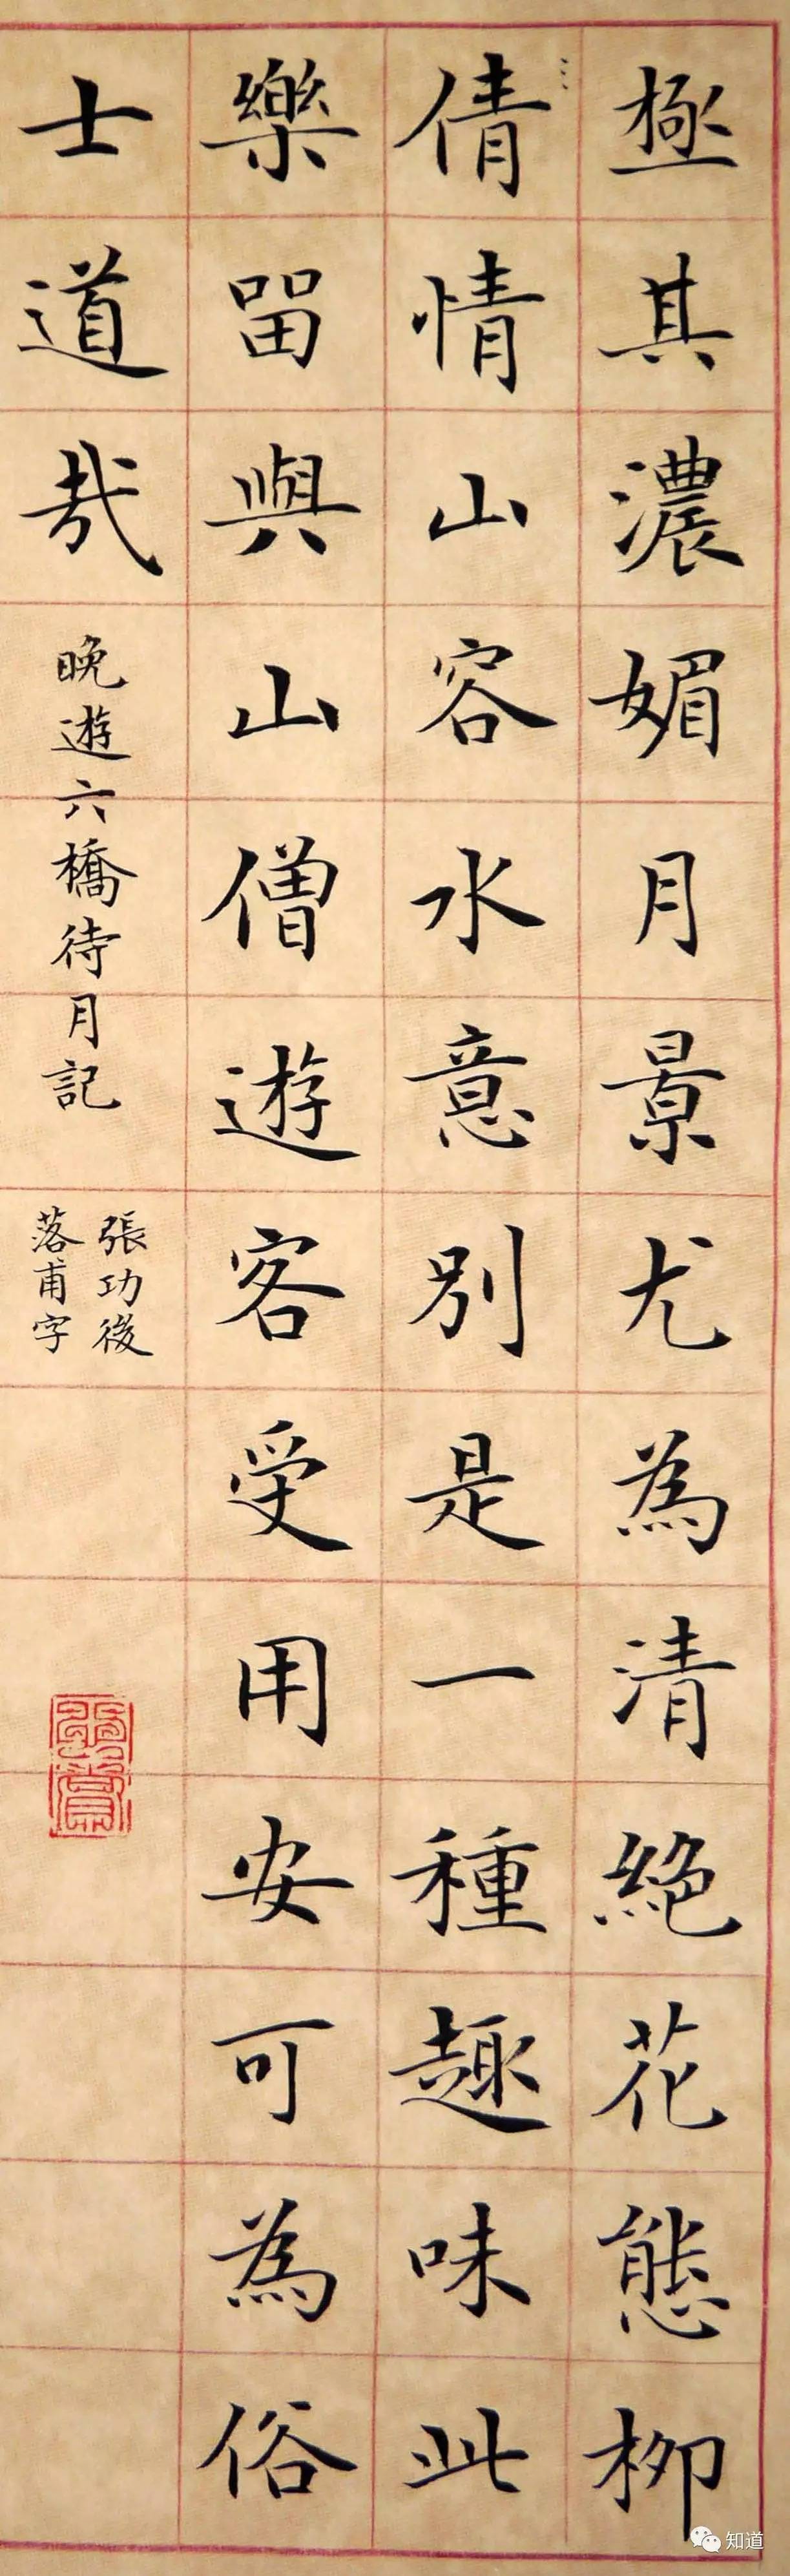 極其濃媚月景尤為清絶花態柳
倩情山容水意別是一種趣味此
樂留與山僧遊客受用安可為俗
士道哉 晚遊六橋待月記
張功後
落甫字
知道